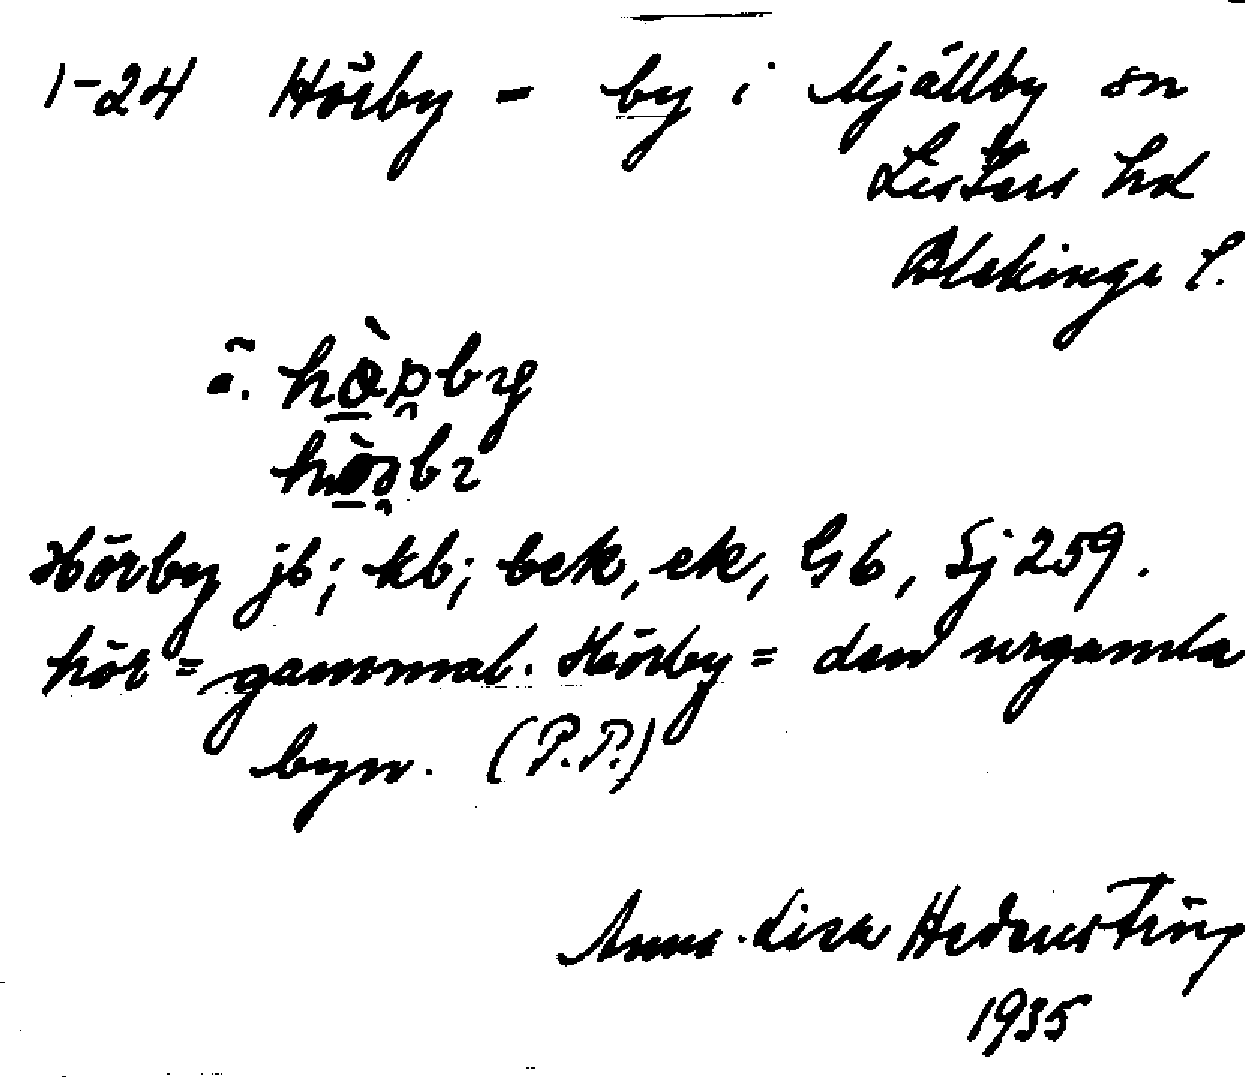 1-24 Hörby - by i Mjällby sn
Listers hd
Blekinge l.
Hörby jb; kb; bek, ek, Gb, Sj 259.
hör = gammal. Hörby = den urgamla
byn. (P.P.)
Anna-Lisa
1935